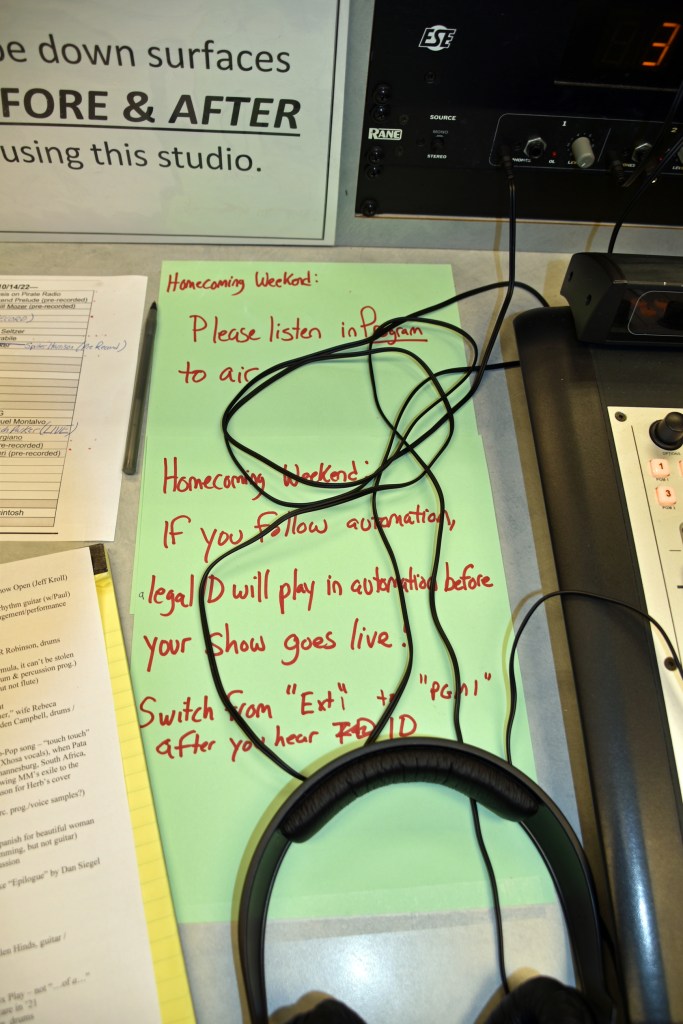 pe down surfaces
FORE & AFTER
using this studio.
ESE
3
SOURCE
MONO
STEREO
RANE
1
2
Homecoming Weekend:
Please listen in Program
to air
Homecoming Weekend:
If you follow automation,
legal ID will play in automation before
your show goes live!
Switch from "Ext 1" to "PGM 1"
after you hear ID
10/14/22—
esis on Pirate Radio
and Prelude (pre-recorded)
ll Mozer (pre-recorded)
Seltzer
uel Montalvo
(LIVE)
rgiano
re-recorded)
eri (pre-recorded)
cintosh
OPTIONS
1
PGM 1
3
how Open (Jeff Kroll)
rhythm guitar (w/Paul)
agement/performance
R Robinson, drums
rmula, it can't be stolen
um & percussion prog.)
but not flute)
ner," wife Rebeca
den Campbell, drums /
o-Pop song – "touch touch"
(Xhosa vocals), when Pata
hannesburg, South Africa,
wing MM's exile to the
son for Herb's cover
rc. prog./voice samples?)
panish for beautiful woman
mming, but not guitar)
ussion
sa "Epilogue" by Dan Siegel
eo Hinds, guitar /
s Play – not "…of a…"
are in '21
drums